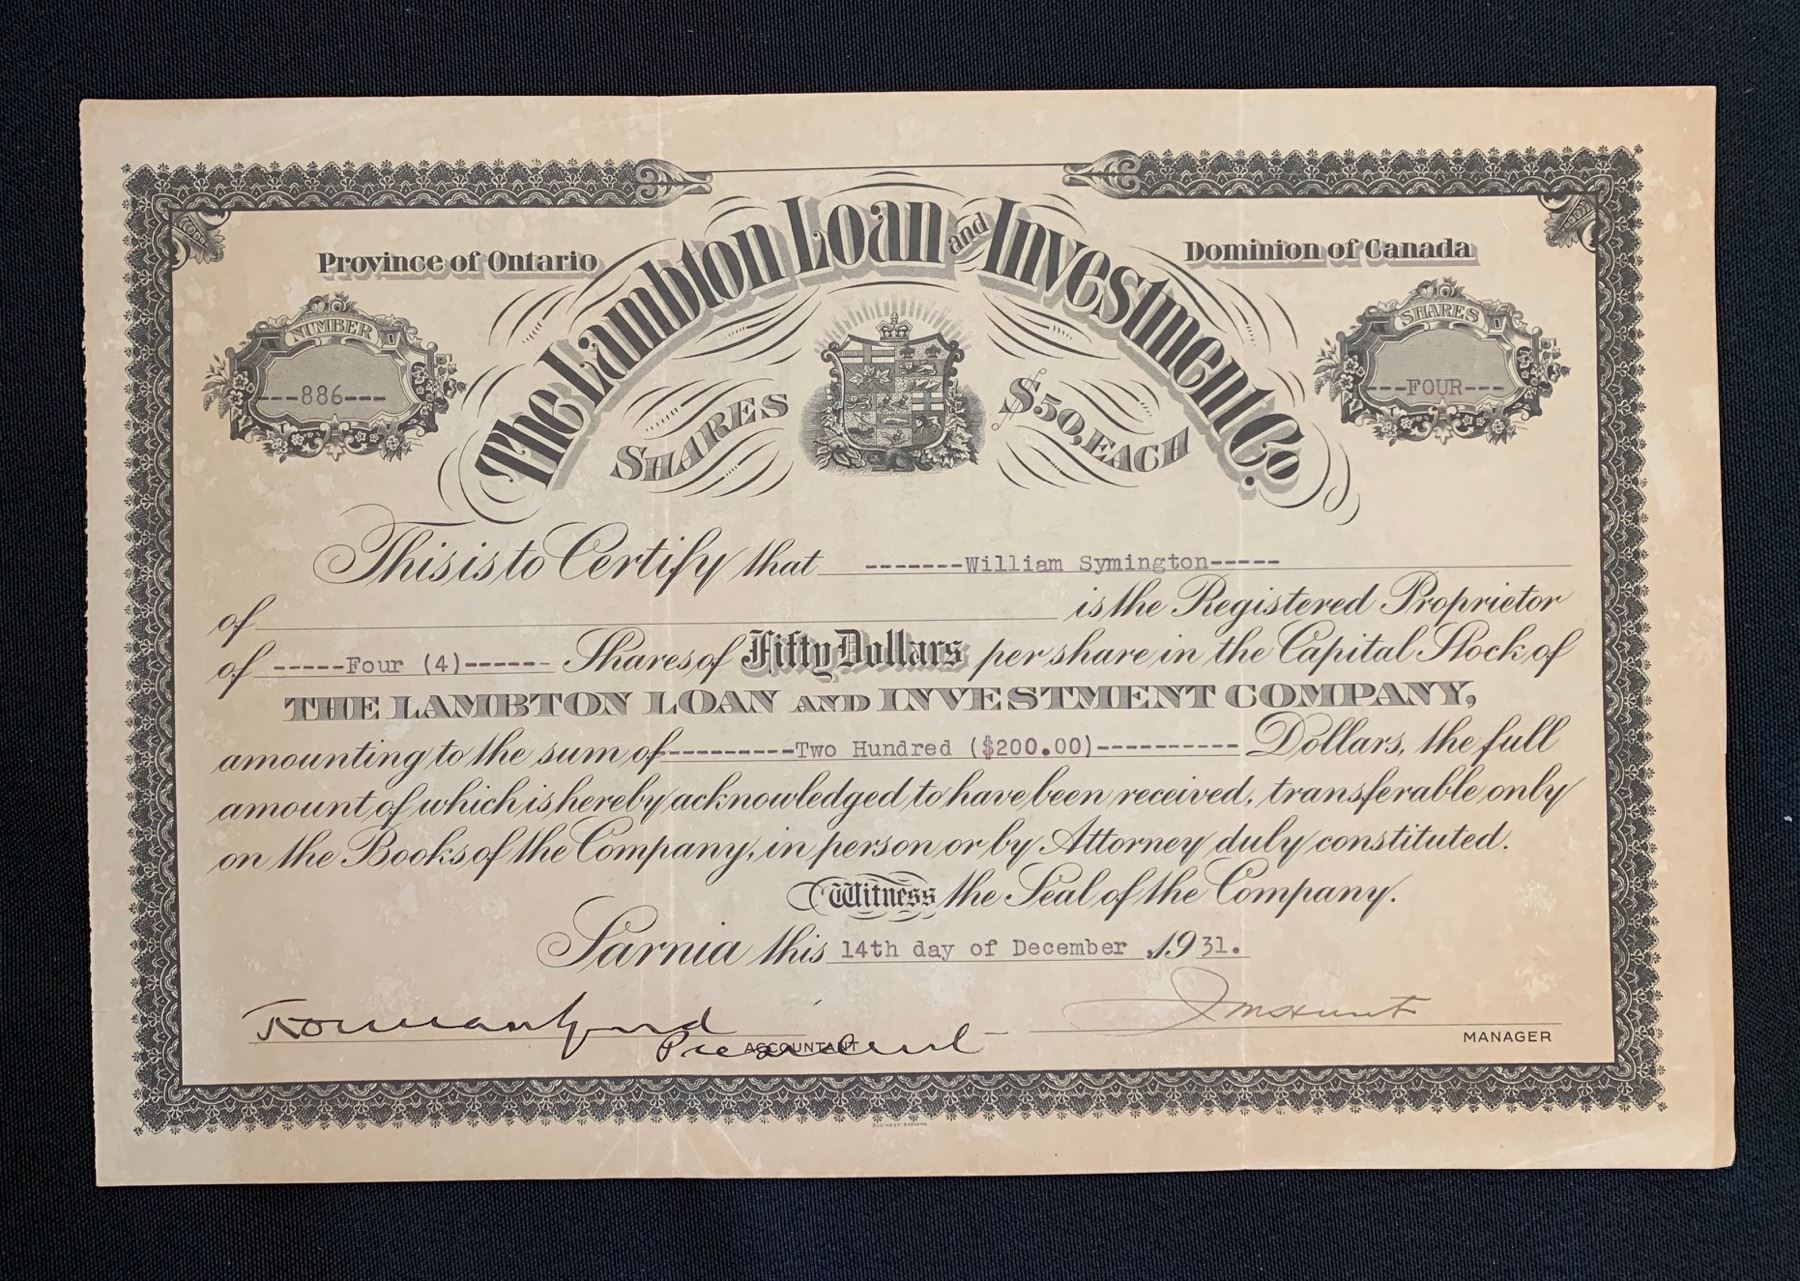 Province of Ontario
Dominion of Canada
The Lambton Loan and Investment Co.
NUMBER
---886---
SHARES
---FOUR---
SHARES $50, EACH
This is to Certify that -------William Symington-----
of is the Registered Proprietor
of -----Four (4)------ Shares of Fifty Dollars per share in the Capital Stock of
THE LAMBTON LOAN AND INVESTMENT COMPANY,
amounting to the sum of---------Two Hundred ($200.00)---------- Dollars, the full
amount of which is hereby acknowledged to have been received, transferable only
on the Books of the Company, in person or by Attorney duly constituted.
Witness the Seal of the Company.
Sarnia this 14th day of December, 1931.
President
ACCOUNTANT
MANAGER